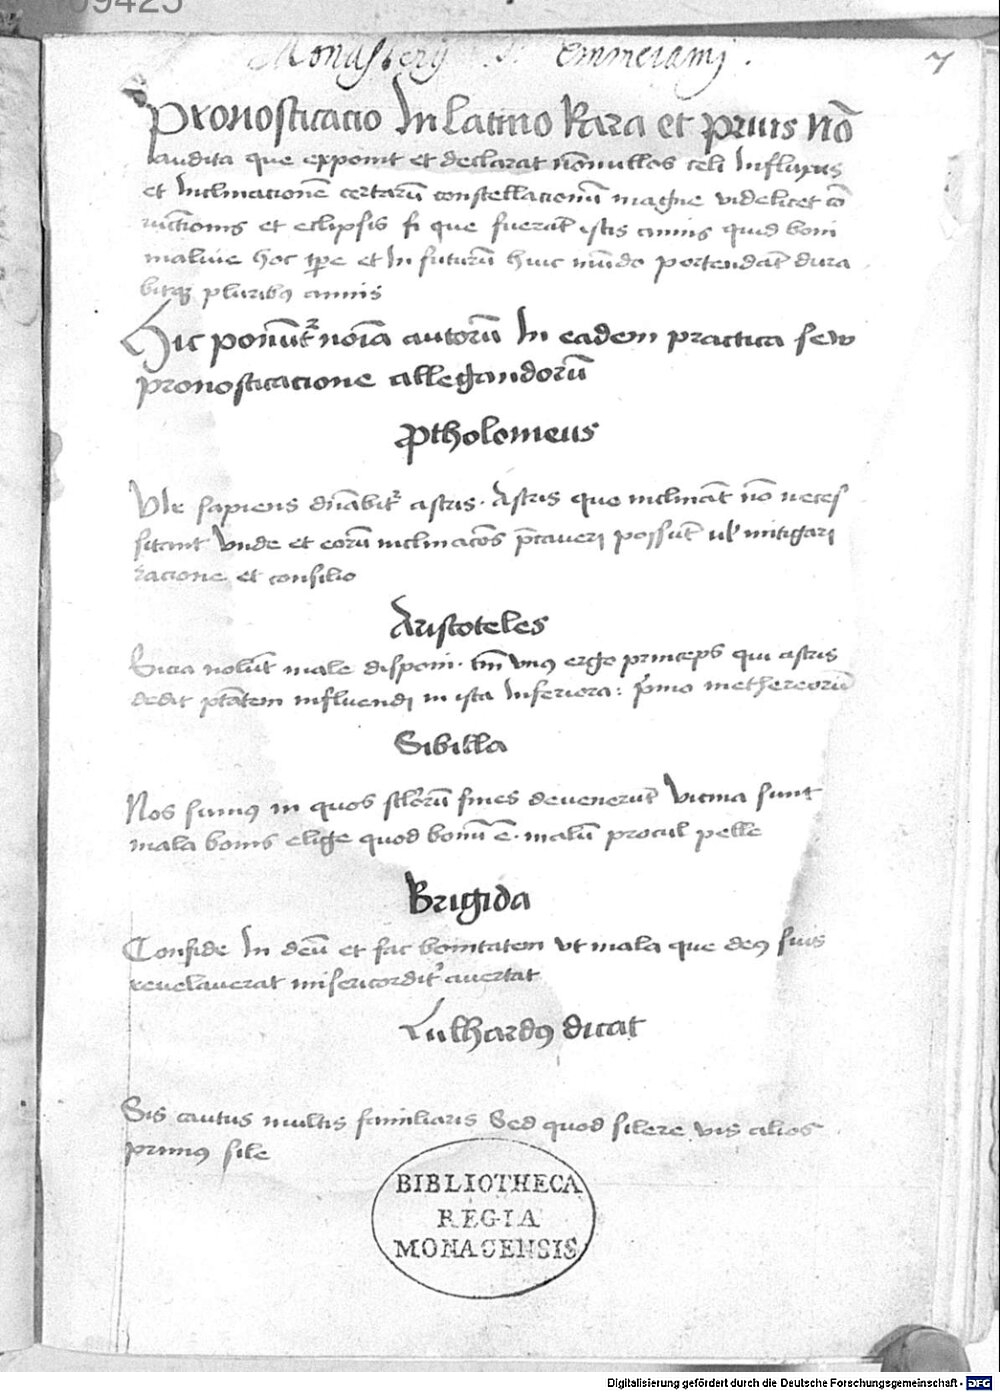 09425
Monasterij S. Emmerami.
7
Pronosticacio In latino Rara et prius nō
audita que exponit et declarat nōnullos celi Influxus
et Inclinacionē certarū constellacionū magne videlicet cō
iūctionis et eclipsis fi que fuerāt istis annis quid boni
maliue hoc tp̄e et In futurū huic mūdo portendāt dura
bitqꝫ pluribꝰ annis
Hic ponūt᷑ noīa autorū In eadem practica sew
pronosticacione allegandorū
Ptholomeus
Vir sapiens dn̄abit᷑ astris. Astris que inclināt nō neces
sitant Vnde et eorū inclinacōes p̄caueri possūt ul̛ mitigari
racione et consilio
Aristoteles
Encia nolūt male disponi. tm̄ vnꝰ ergo princeps qui astris
dedit ptātem influendi in ista Inferiora: p̄mo methereorū
Sibilla
Nos sumꝰ in quos sc̄lorū fines deuenerūt Vicina sunt
mala bonis elige quod bonū ē. malū procul pelle
Brigida
Confide In deū et fac bonitatem vt mala que deꝰ suis
reuelauerat misericordit᷑ auertat
Lulhardꝰ dicat
Sis cautus multis familiaris Sed quod silere vis alios
primꝰ sile
BIBLIOTHECA
REGIA
MONACENSIS
Digitalisierung gefördert durch die Deutsche Forschungsgemeinschaft - DFG